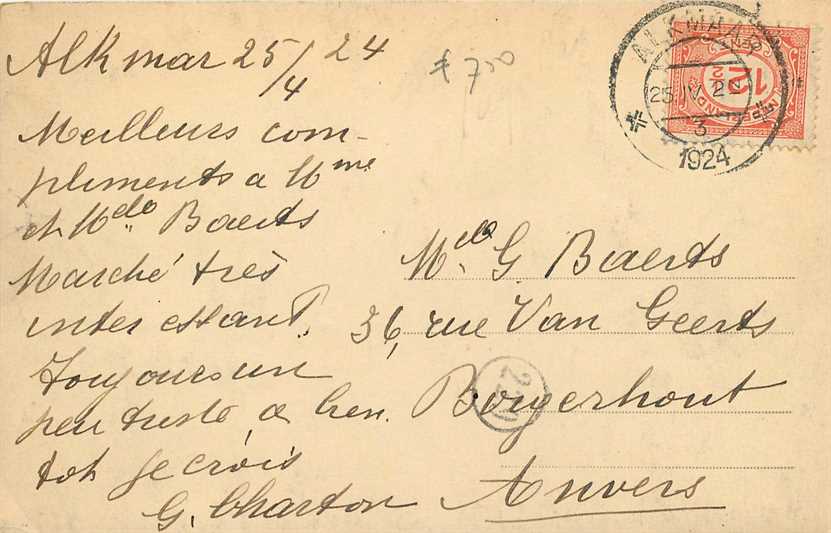 Alkmar 25/4 24
Meilleurs com-
pliments a Mme
et Mdlo Baerts
Marché très
interessant.
Toujours un
peu triste, a bien
tot je crois
G. Charton
f 7.00
ALKMAAR
25 IV 22
3
1924
12½
Mdlo G Baerts
36, rue Van Geerts
Borgerhout
Anvers